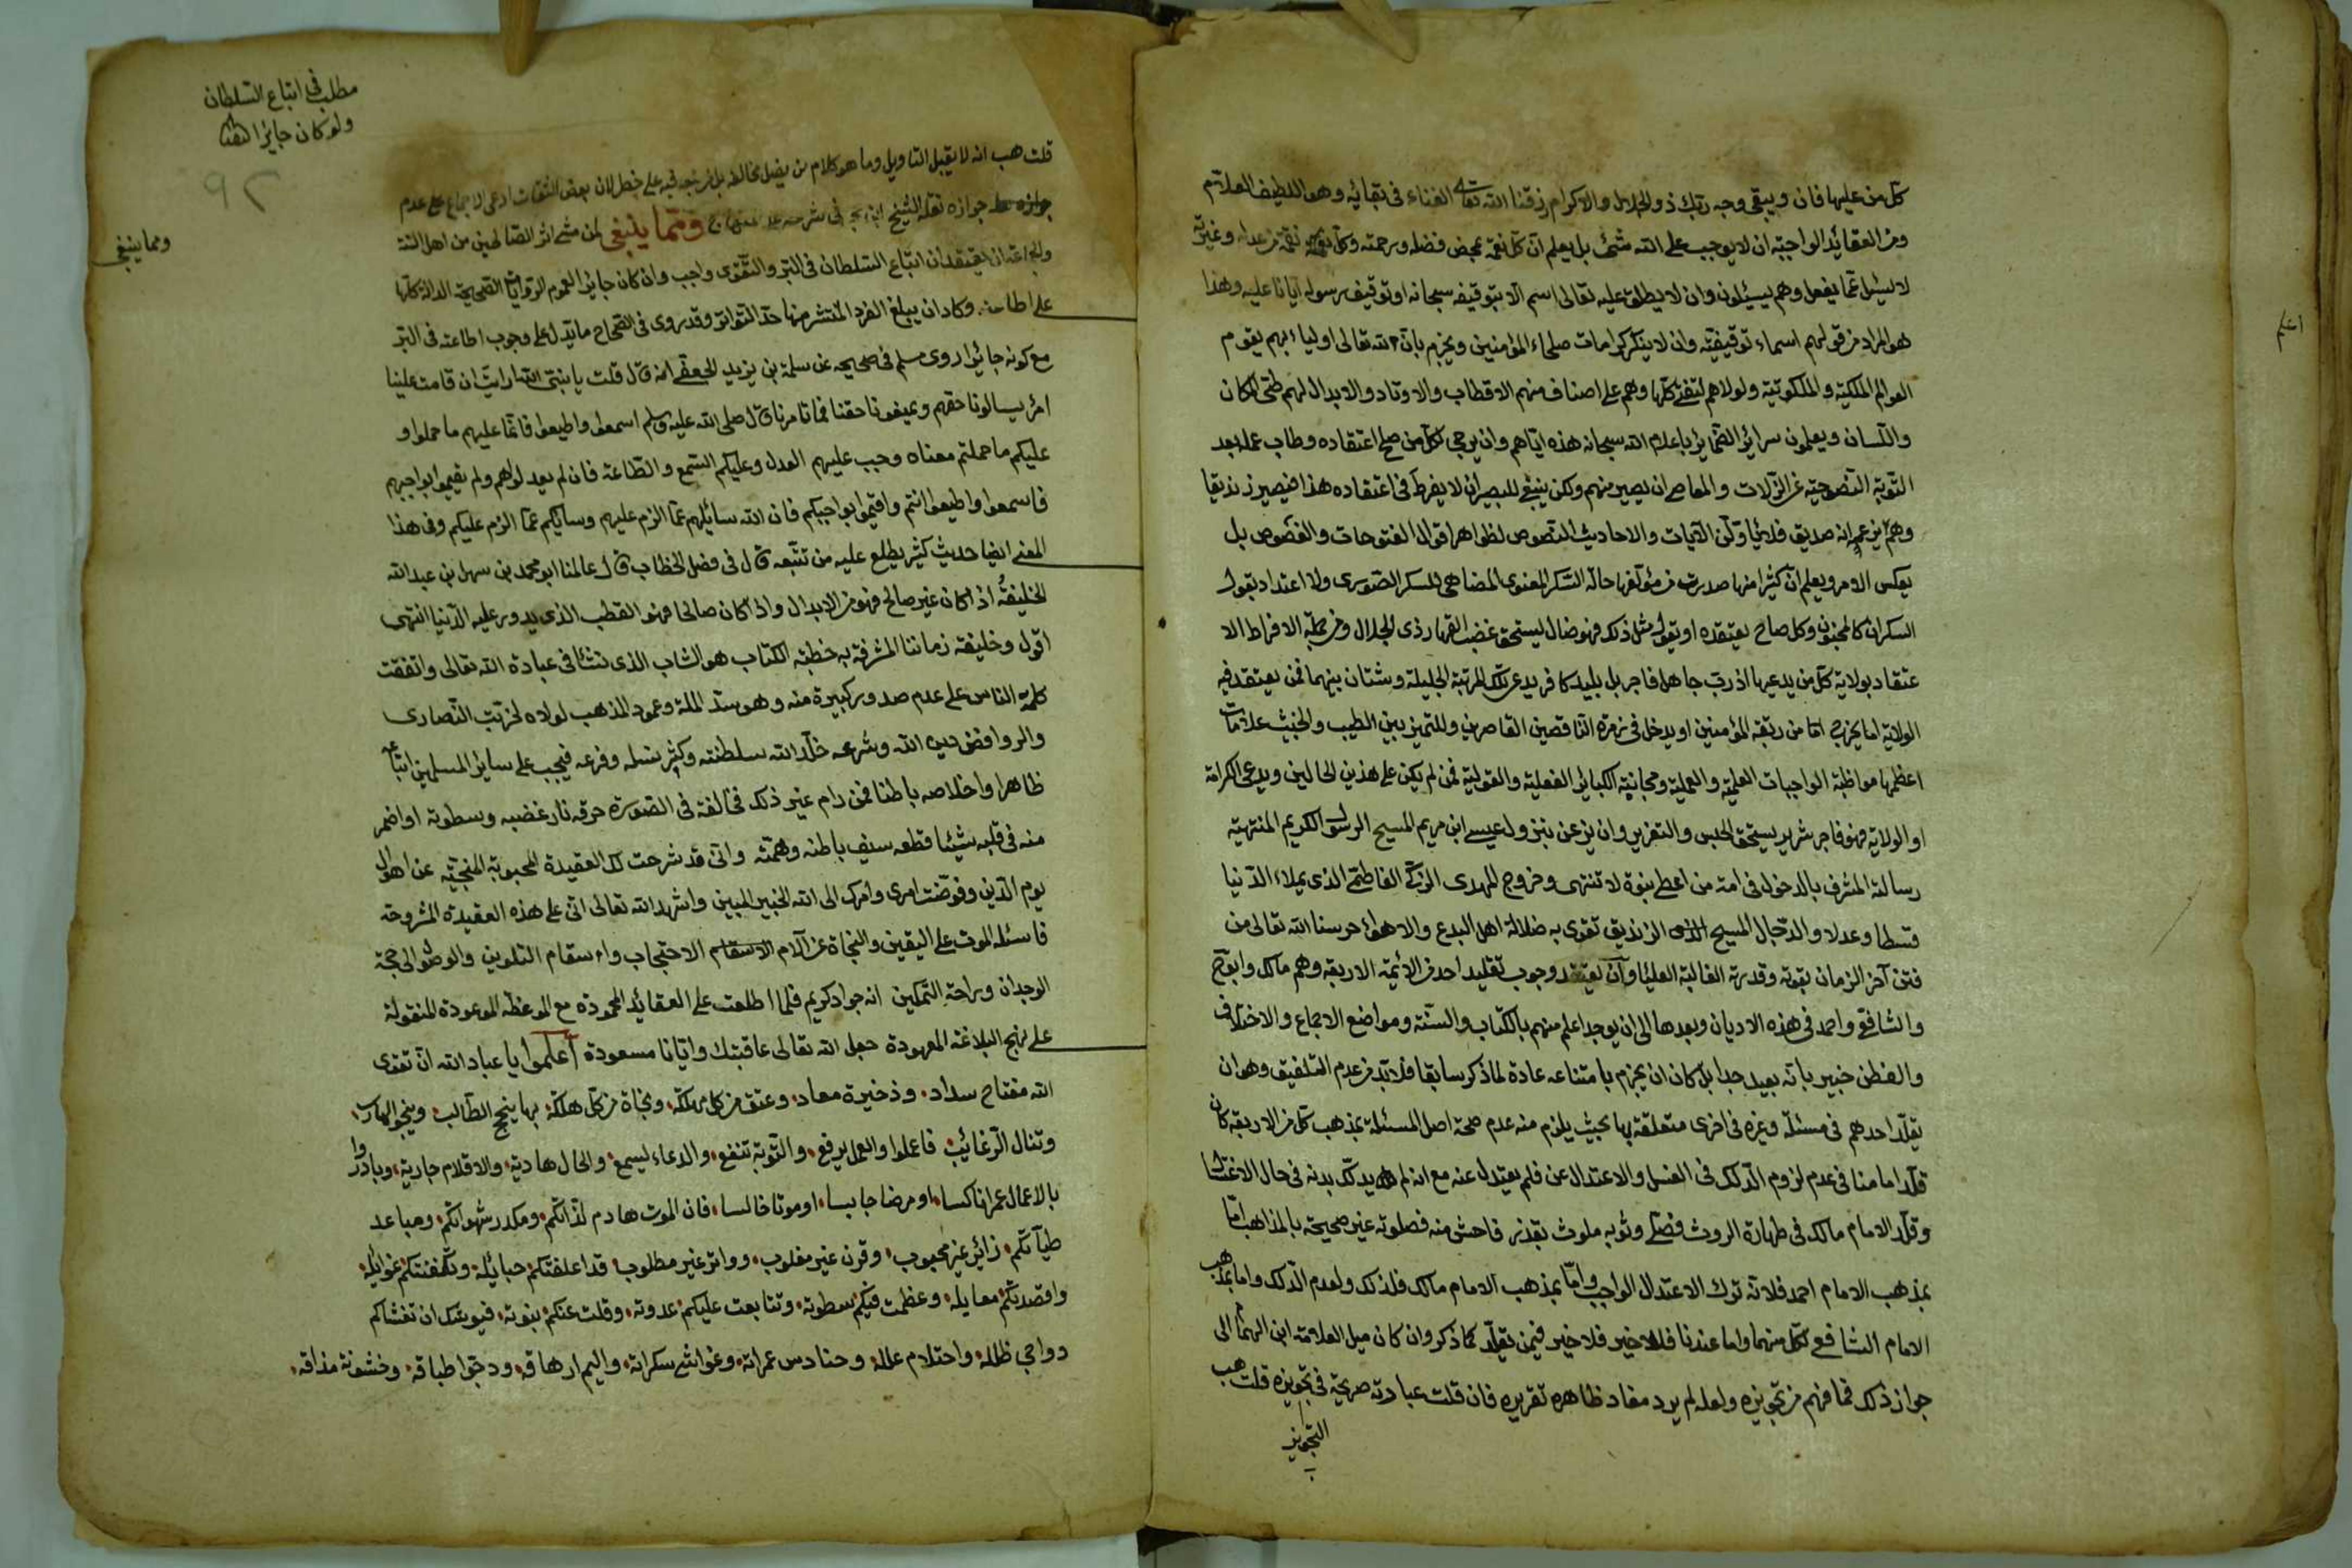 كل من عليها فان ويبقى وجه ربك ذو الجلال والاكرام رزقنا الله تعالى الفناء في بقائه وهو اللطيف العلام
ومن العقائد الواجبة ان لا يوجب على الله شئ بل يعلم ان كل نعمة بمحض فضله ورحمته وكل نقمة من عدله وغيرته
لا يسئل عما يفعل وهم يسئلون وان لا يطلق عليه تعالى اسم الا بتوقيفه سبحانه او توقيف رسوله ايانا عليه وهذا
هو المراد من قولهم اسماءه توقيفية وان لا ينكر كرامات صلحاء المؤمنين ويجزم بان لله تعالى اولياء بهم يقوم
العوالم الملكية والملكوتية ولولاهم لتفنى كلها وهم على اصناف منهم الاقطاب والاوتاد والابدال لهم طي المكان
واللسان ويعلمون سرائر الضمائر باعلام الله سبحانه هذه اياهم وان يرجى لكل من صلح اعتقاده وطاب عمله بعد
التوبة النصوحية عن الزلات والمعاصي ان يصير منهم ولكن ينبغي للبصير ان لا يفرط في اعتقاده هذا فيصير زنديقا
وهم يزعم انه صديق فلا يأول الآيات والاحاديث النصوص لظواهر اقوال الفتوحات والفصوص بل
يعكس الامر ويعلم ان كثيرا منها صدرت من مؤلفها حالة السكر المعنوى المضاهي للسكر الصورى ولا اعتداد بقول
السكران كالمجنون وكل صاح يعتقده او يقول مثل ذلك فهو ضال يستحق غضب القهار ذى الجلال ومن جملة الافراط الا
عتقاد بولاية كل من يدعيها اذ رب جاهل فاجر بل بليد كافر يدعى تلك المرتبة الجليلة وشتان بينهما فمن يعتقد فيه
الولاية اما يخرج اما من ربقة المؤمنين او يدخل في زمرة الناقصين القاصرين وللتميز بين الطيب والخبيث علامات
اعظمها مواظبة الواجبات العلمية والعملية ومجانبة الكبائر الفعلية والقولية فمن لم يكن على هذين الحالين ويدعى الكرامة
او الولاية فهو فاجر شرير يستحق الحبس والتعزير وان يزعن بنزول عيسى ابن مريم المسيح الرسول الكريم المنتهية
رسالته المشرف بالدخول في امة من اعطى بنوة لا تنتهى وخروج المهدى الزكى الفاطمى الذى يملاء الدنيا
قسطا وعدلا والدجال المسيح الزنديق تقوى به ضلالة اهل البدع والاهواء حرسنا الله تعالى من
فتن آخر الزمان بقوته وقدرته الغالبة العليا وان يعتقد وجوب تقليد احد من الائمة الاربعة وهم مالك وابو ح
والشافعى واحمد في هذه الاديان وبعدها الى ان يوجد اعلم منهم بالكتاب والسنة ومواضع الاجماع والاختلاف
والفطن خبير بانه بعيد جدا بل كان ان يجزم بامتناعه عادة لما ذكر سابقا فلا بد من عدم التلفيق وهو ان
يقلد احدهم في مسئلة وغيره في اخرى متعلقة بها بحيث يلزم منه عدم صحة اصل المسئلة بمذهب كل من الاربعة كان
قلد امامنا في عدم لزوم الدلك في الغسل والاعتدال عن فلم يعتدل عنه مع انه لم يدلك بدنه في حال الاغتسال
وقلد الامام مالك في طهارة الروث فصلى وثوبه ملوث بقذر فاحش منه فصلوته غير صحيحة بالمذاهب اما
بمذهب الامام احمد فلانه ترك الاعتدال الواجب واما بمذهب الامام مالك فلذلك ولعدم الدلك واما بمذهب
الامام الشافعى لكل منهما واما عندنا فللاخير فلا خير فيمن يقلد كما ذكر وان كان ميل العلامة ابن الهمام الى
جواز ذلك فما فهم من تجويزه ولعله لم يرد مفاد ظاهره تقريره فان قلت عبارته صريحة في تجويزه قلت هب
التجويز
اعلم
مطلب في اتباع السلطان
ولو كان جايرا
٩٢
ومما ينبغى
قلت هب انه لا يقبل التاويل وما هو كلام من يضل مخالفه بل من يتجه فيه على خطر لان بعض الثقات ادعى الاجماع على عدم
جوازه نقله الشيخ ابن حجر في شرحه على المنهاج ومما ينبغى لمن مشى اثر الصالحين من اهل السنة
والجماعة ان يعتقد ان اتباع السلطان في البر والتقوى واجب وان كان جايرا لعموم الروايات الصحيحة الدالة كلها
على اطاعته وكاد ان يبلغ الفرد المنتشر منها حد التواتر وقد روى في الصحاح ما يدل على وجوب اطاعته في البر
مع كونه جائرا روى مسلم في صحيحه عن سلمة بن يزيد الجعفى انه قال قلت يا نبى الله ارايت ان قامت علينا
امراء يسالونا حقهم ويمنعونا حقنا فما تامرنا قال صلى الله عليه وسلم اسمعوا واطيعوا فانما عليهم ما حملوا و
عليكم ما حملتم معناه وجب عليهم العدل وعليكم السمع والطاعة فان لم يعدلوا هم ولم يقيموا بواجبهم
فاسمعوا واطيعوا انتم واقيموا بواجبكم فان الله سائلهم عما الزم عليهم وسائلكم عما الزم عليكم وفى هذا
المعنى ايضا حديث كثير يطلع عليه من تتبعه قال في فصل الخطاب قال عالمنا ابو محمد بن سهل بن عبد الله
الخليفة اذا كان غير صالح فهو من الابدال واذا كان صالحا فهو القطب الذى يدور عليه الدنيا انتهى
اقول وخليفة زماننا المشرفة به خطبة الكتاب هو الشاب الذى نشأ في عبادة الله تعالى واتفقت
كلمة الناس على عدم صدور كبيرة منه وهو سند الملة وعمود المذهب لولاه لخربت النصارى
والروافض دين الله وشرعه خلد الله سلطنته وكثر نسله وفرعه فيجب على سائر المسلمين اتباعه
ظاهرا واخلاصه باطنا فمن رام غير ذلك فخالفه في الصورة حرقه نار غضبه وسطوته او اضمر
منه في قلبه شيئا قطعه سيف باطنه وهمته وانى قد شرحت لك العقيدة المحبوبة المنجية عن اهوال
يوم الدين وفوضت امرى وامرك الى الله الخبير المبين واشهد الله تعالى انى على هذه العقيدة المشروحة
فاسئله الموت على اليقين والنجاة عن آلام الاحتجاب واسقام التلوين والوصول الى جنة
الوجدان وراحة التمكين انه جواد كريم فلما اطلعت على العقائد المحمودة مع الموعظة الموعودة المنقولة
على نهج البلاغة المعهودة جعل الله تعالى عاقبتك وايانا مسعودة اعلموا يا عباد الله ان تقوى
الله مفتاح سداد وذخيرة معاد وعتق من كل مهلكة ونجاة من كل هلكة بها ينجح الطالب وينجو الهارب
وتنال الرغائب فاعملوا والعمل يرفع والتوبة تنفع والدعاء يسمع والحال هادية والاقلام جارية وبادروا
بالاعمال عمرا ناكسا او مرضا حابسا او موتا خالسا فان الموت هادم لذاتكم ومكدر شهواتكم ومباعد
طياتكم زائر غير محبوب وقرن غير مغلوب وواتر غير مطلوب قد اعلقتكم حبائله وتكنفتكم غوائله
واقصدتكم معابله وعظمت فيكم سطوته وتتابعت عليكم عدوته وقلت عنكم نبوته فيوشك ان تغشاكم
دواجى ظلله واحتدام علله وحنادس غمراته وغواشى سكراته واليم ارهاقه ودجو اطباقه وخشونة مذاقه